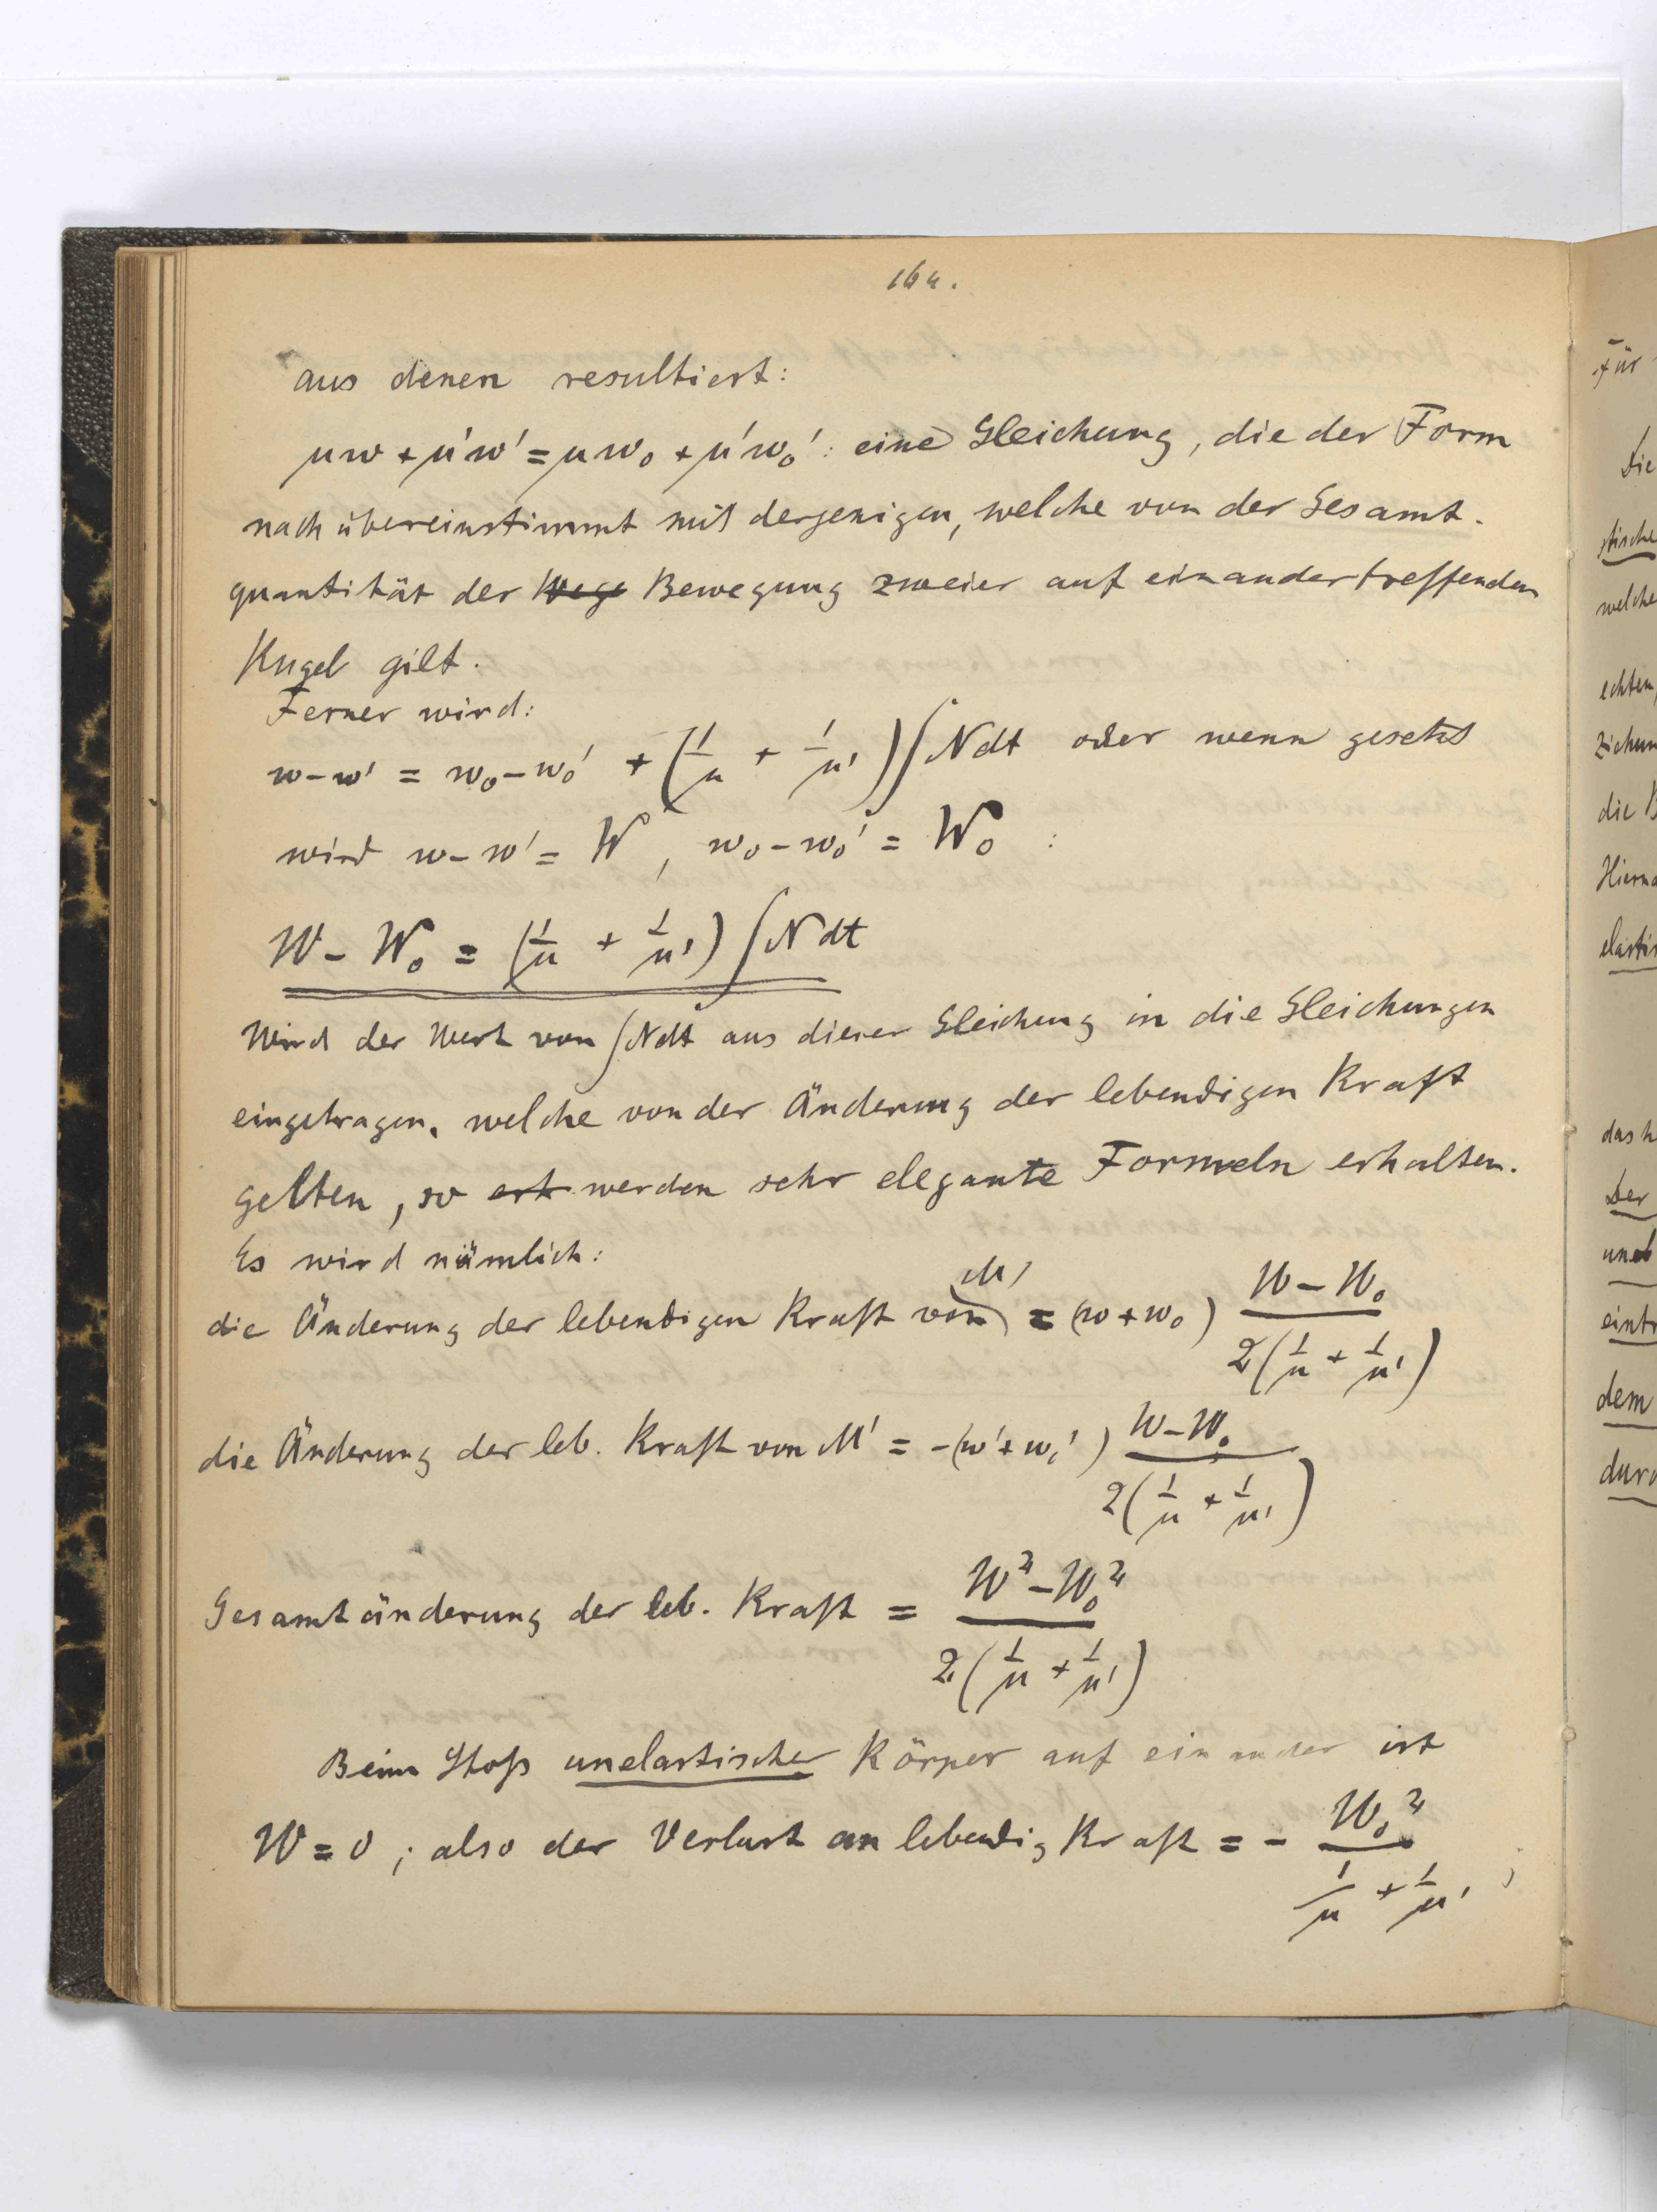 164.
aus denen resultiert:
μw + μ'w' = μw₀ + μ'w₀' : eine Gleichung, die der Form
nach übereinstimmt mit derjenigen, welche von der Gesamt-
quantität der Wege Bewegung zweier auf einandertreffenden
Kugel gilt.
Ferner wird:
w - w' = w₀ - w₀' + (1/μ + 1/μ') ∫N dt oder wenn gesetzt
wird w - w' = W, w₀ - w₀' = W₀ :
W - W₀ = (1/μ + 1/μ') ∫N dt
Wird der Wert von ∫Ndt aus dieser Gleichung in die Gleichungen
eingetragen, welche von der Änderung der lebendigen Kraft
gelten, so erh werden sehr elegante Formeln erhalten.
Es wird nämlich:
die Änderung der lebendigen Kraft von M = (w + w₀) (W - W₀)/(2(1/μ + 1/μ'))
die Änderung der leb. Kraft von M' = -(w' + w₀') (W - W₀)/(2(1/μ + 1/μ'))
Gesamtänderung der leb. Kraft = (W² - W₀²)/(2(1/μ + 1/μ'))
Beim Stoß unelastischer Körper auf einander ist
W = 0 ; also der Verlust an lebendig Kraft = - W₀²/(1/μ + 1/μ') ;
Für
Die
stische
welche
echten,
ziehun
die B
Hierna
elastis
das h
Der
und
eintr
dem
durc